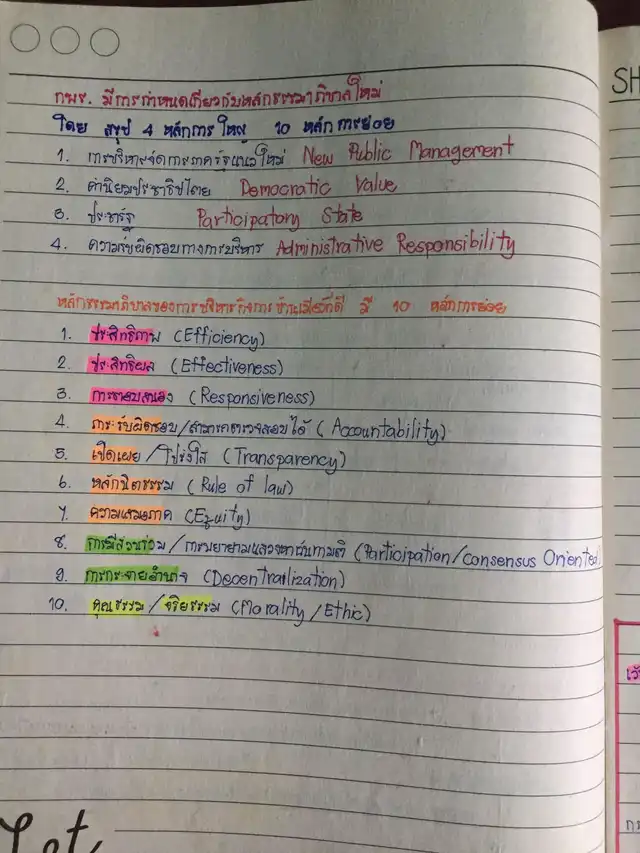 กพร. มีการกำหนดเกี่ยวกับหลักธรรมาภิบาลใหม่
โดย สรุป 4 หลักการใหญ่ 10 หลักการย่อย
1. การบริหารจัดการภาครัฐแนวใหม่ New Public Management
2. ค่านิยมประชาธิปไตย Democratic Value
3. ประชารัฐ Participatory State
4. ความรับผิดชอบทางการบริหาร Administrative Responsibility
หลักธรรมาภิบาลของการบริหารกิจการบ้านเมืองที่ดี มี 10 หลักการย่อย
1. ประสิทธิภาพ (Efficiency)
2. ประสิทธิผล (Effectiveness)
3. การตอบสนอง (Responsiveness)
4. ภาระรับผิดชอบ/สามารถตรวจสอบได้ (Accountability)
5. เปิดเผย/โปร่งใส (Transparency)
6. หลักนิติธรรม (Rule of law)
7. ความเสมอภาค (Equity)
8. การมีส่วนร่วม/การพยายามแสวงหาฉันทามติ (Participation/Consensus Oriented)
9. การกระจายอำนาจ (Decentrailization)
10. คุณธรรม/จริยธรรม (Morality/Ethic)
Let
SH